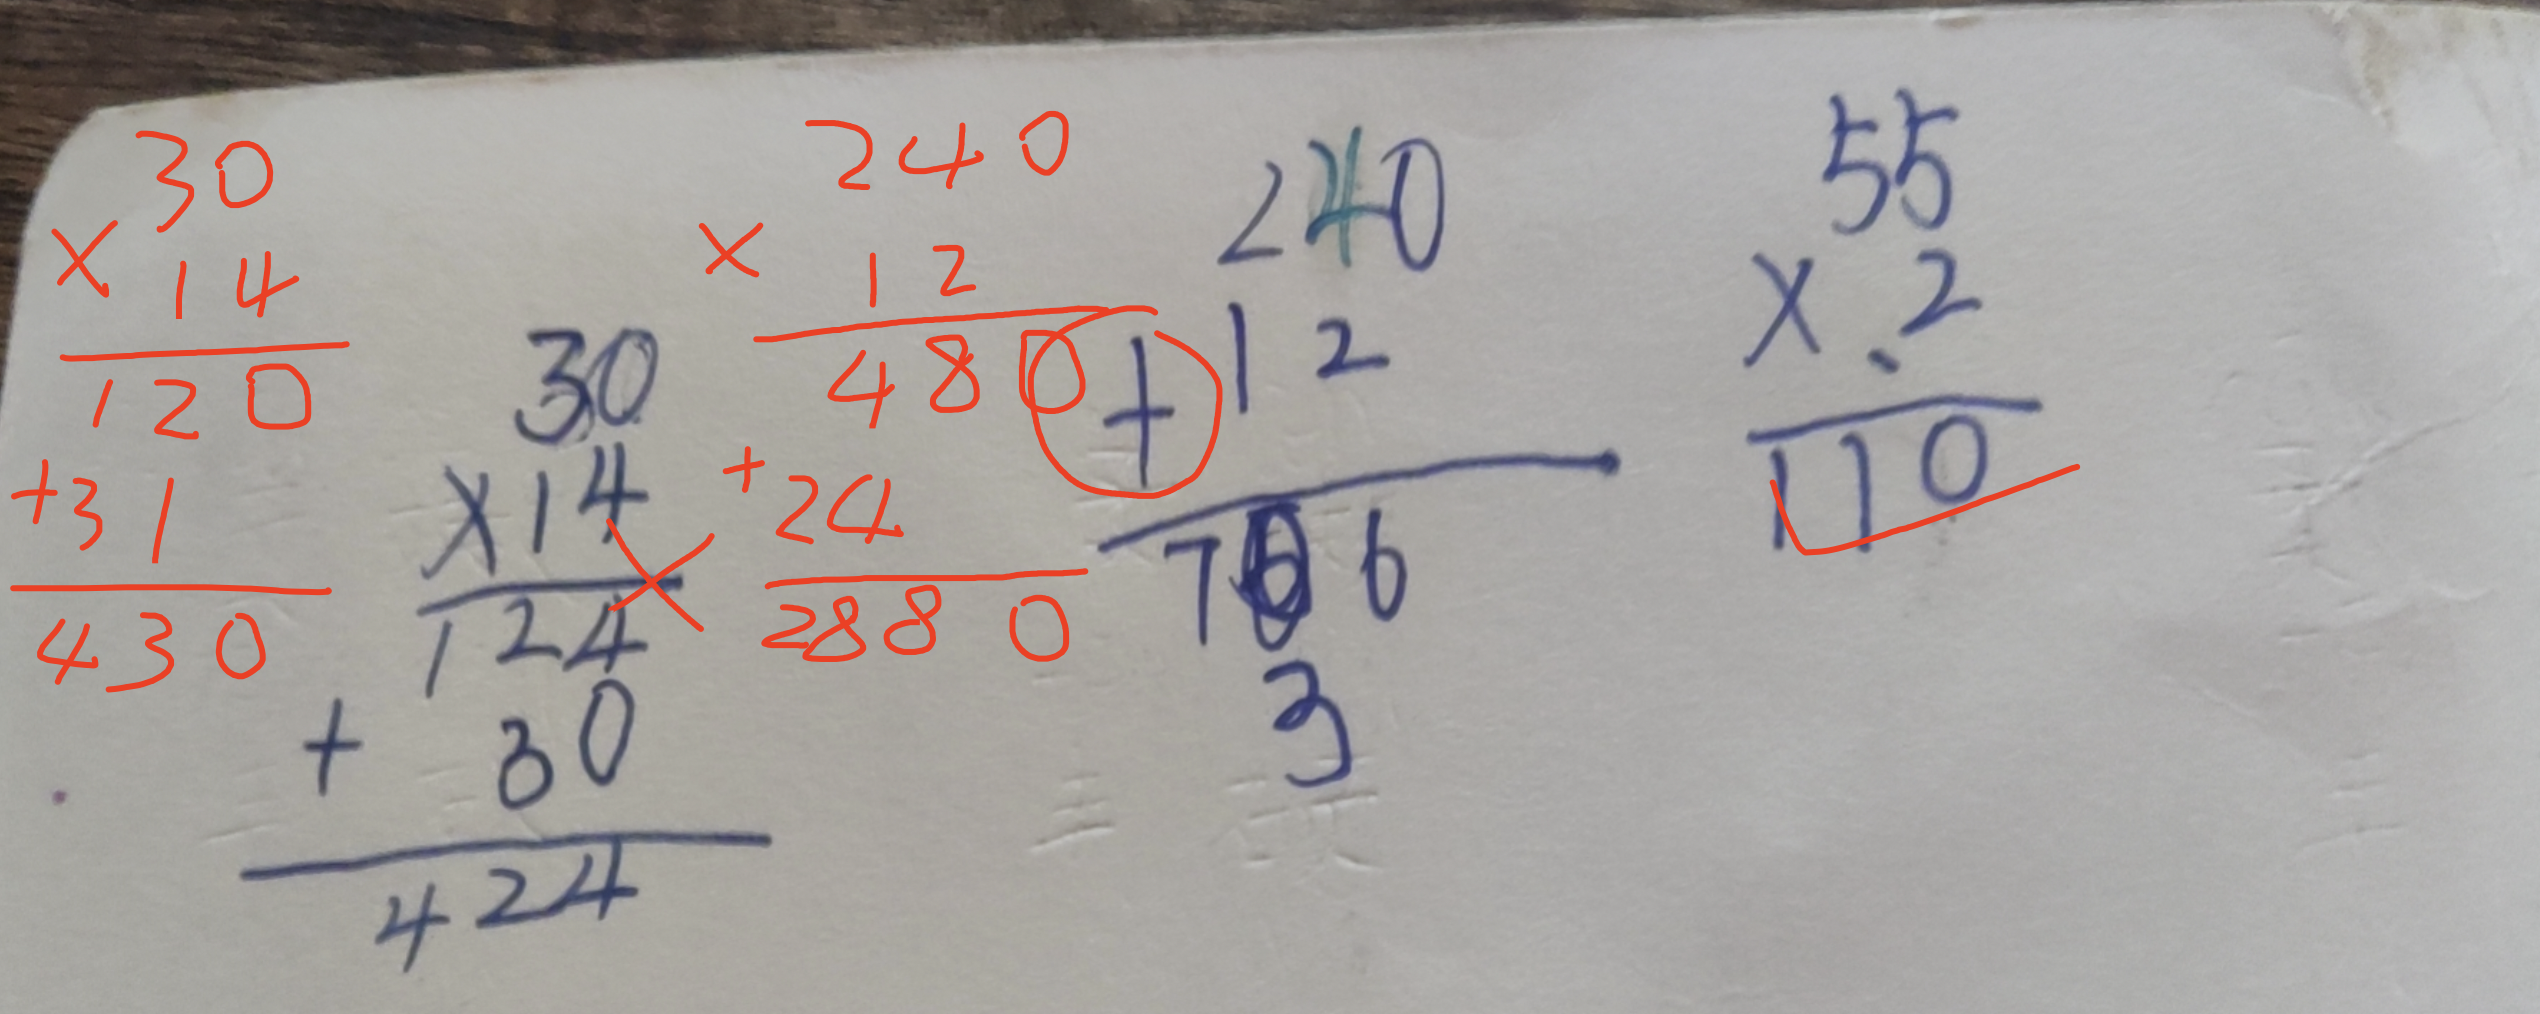 30
× 14
120
+31
430
30
×14
124
+ 30
424
240
× 12
480
+24
2880
240
+12
6
3
55
×.2
110